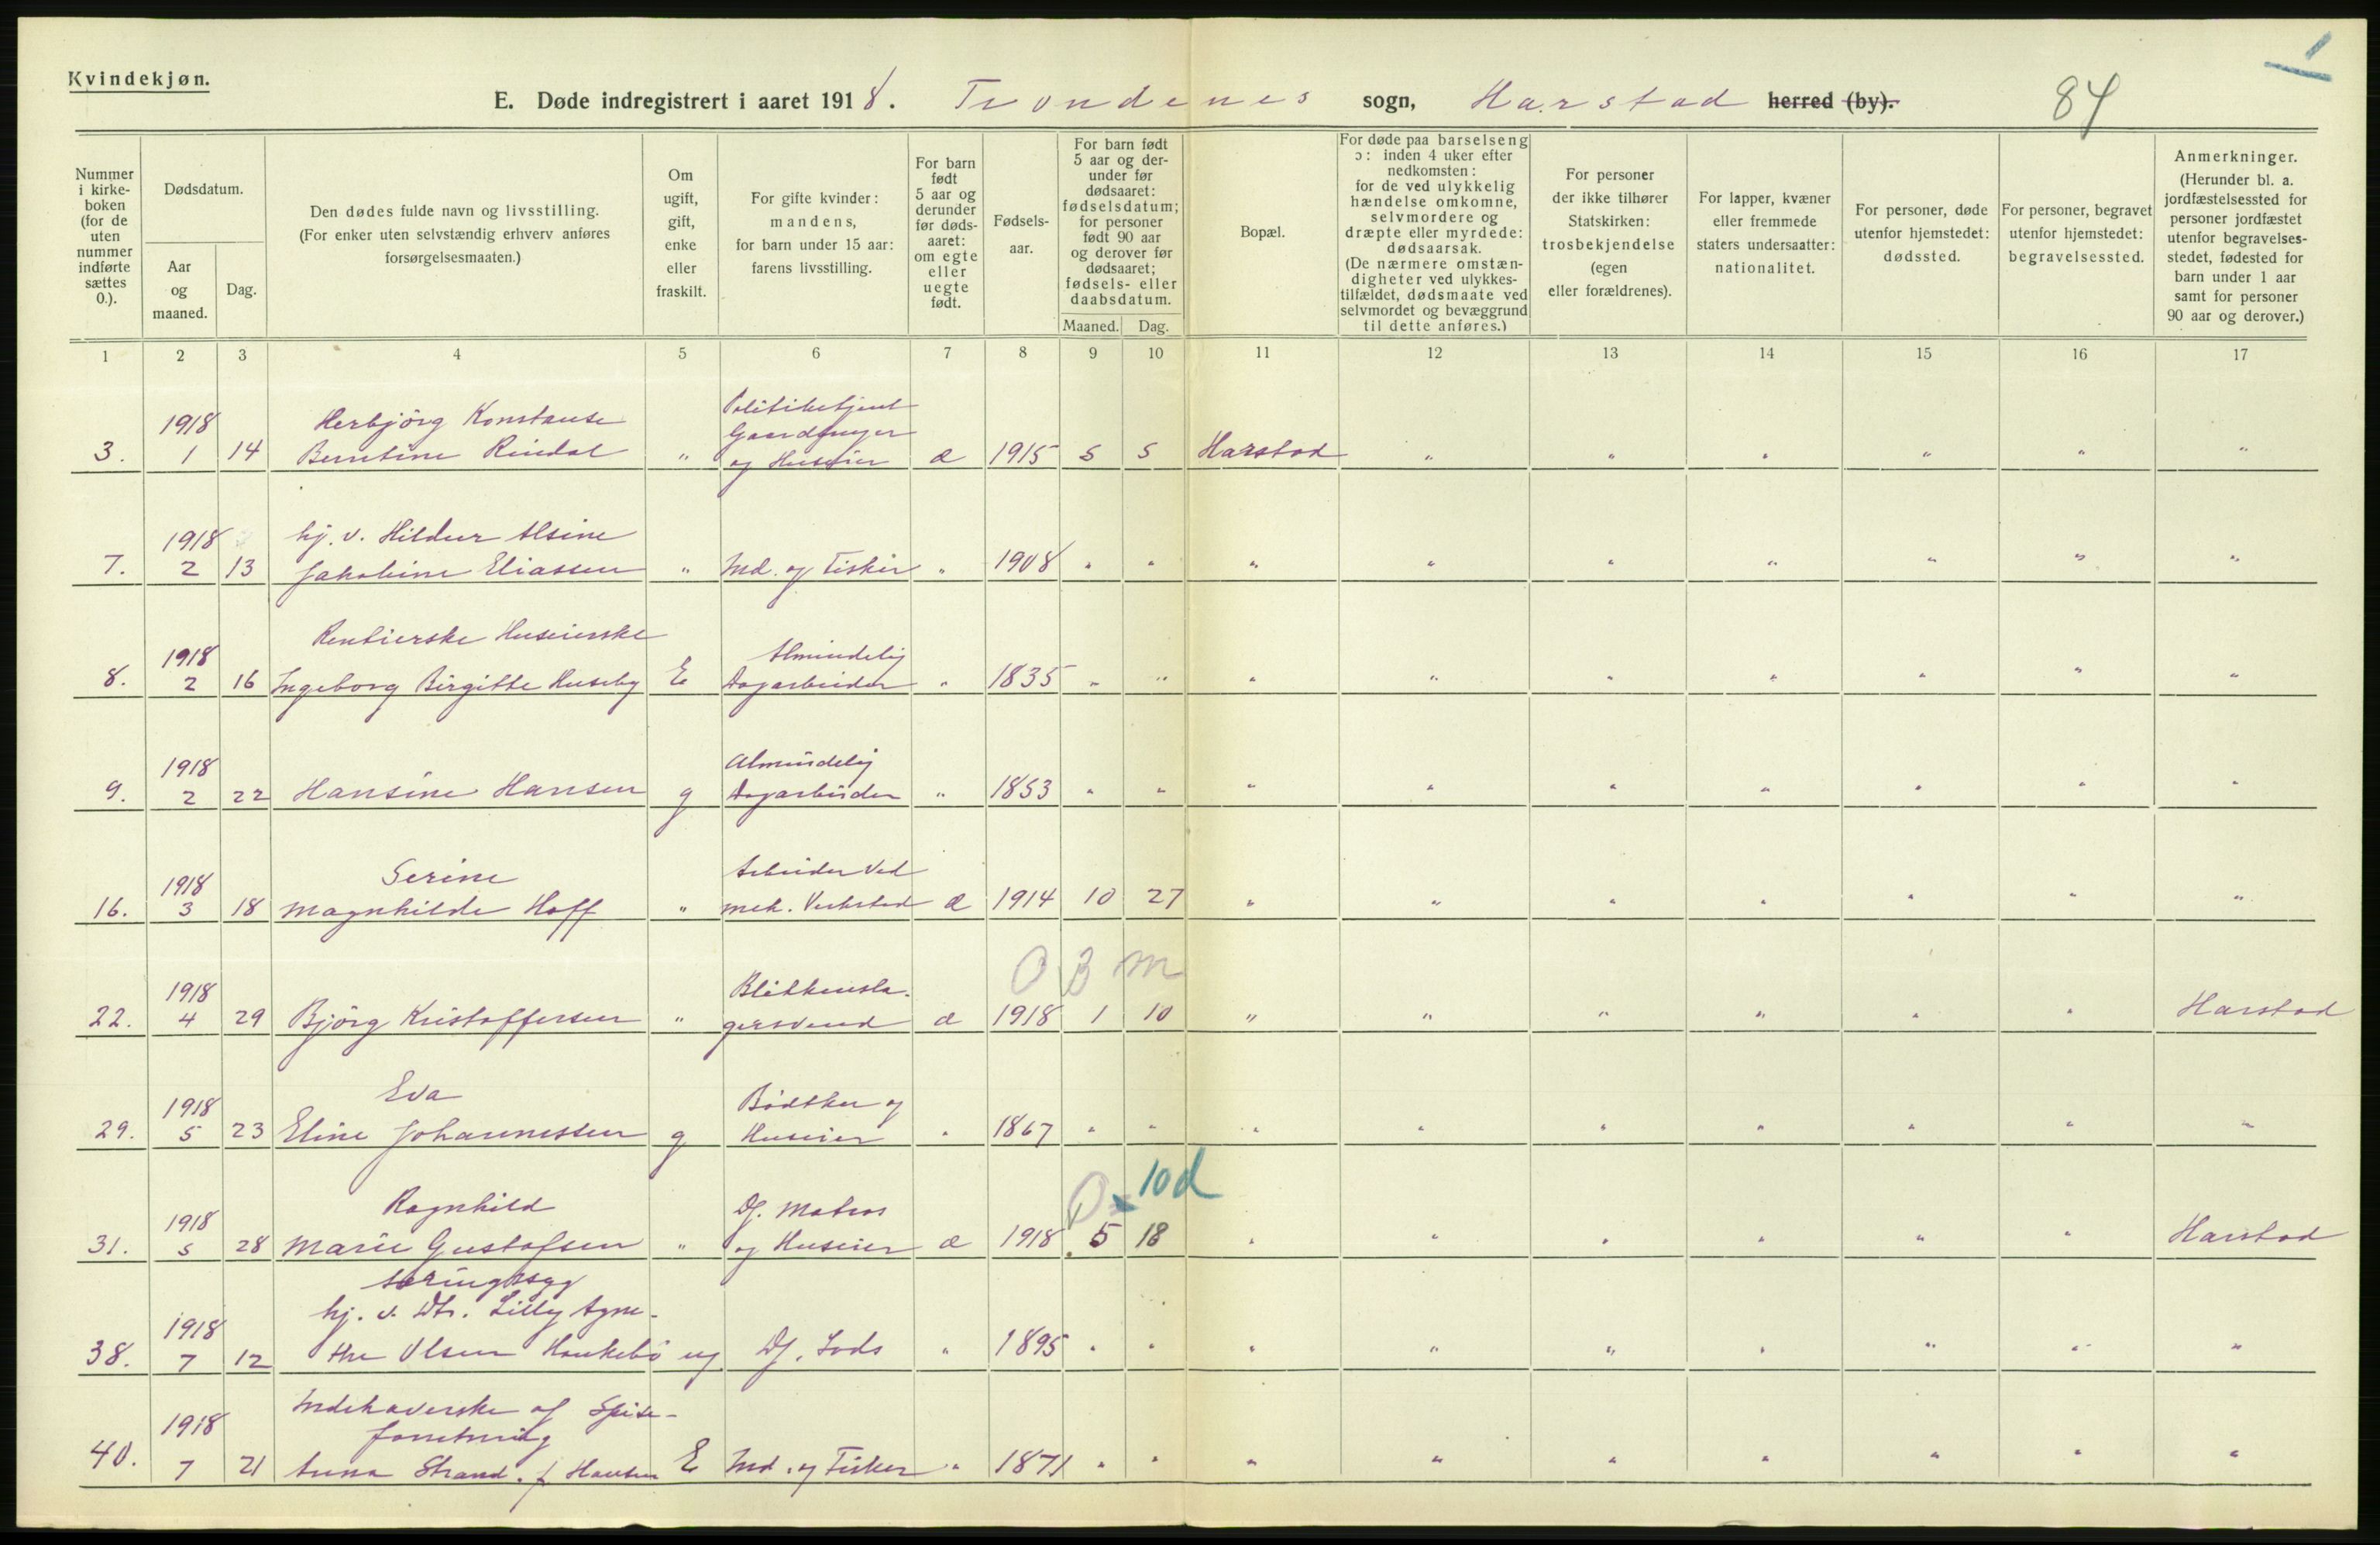 Kvindekjøn.
E. Døde indregistrert i aaret 1918. Trondenes sogn, Harstad herred (by).
84
1
Nummer i kirkeboken (for de uten nummer indførte sættes 0.).
Dødsdatum.
Aar og maaned.
Dag.
Den dødes fulde navn og livsstilling. (For enker uten selvstændig erhverv anføres forsørgelsesmaaten.)
Om ugift, gift, enke eller fraskilt.
For gifte kvinder: mandens, for barn under 15 aar: farens livsstilling.
For barn født 5 aar og derunder før dødsaaret: om egte eller uegte født.
Fødselsaar.
For barn født 5 aar og derunder før dødsaaret: fødselsdatum; for personer født 90 aar og derover før dødsaaret; fødsels- eller daabsdatum.
Maaned. Dag.
Bopæl.
For døde paa barselseng ɔ: inden 4 uker efter nedkomsten: for de ved ulykkelig hændelse omkomne, selvmordere og dræpte eller myrdede: dødsaarsak. (De nærmere omstændigheter ved ulykkestilfældet, dødsmaate ved selvmordet og bevæggrund til dette anføres.)
For personer der ikke tilhører Statskirken: trosbekjendelse (egen eller forældrenes).
For lapper, kvæner eller fremmede staters undersaatter: nationalitet.
For personer, døde utenfor hjemstedet: dødssted.
For personer, begravet utenfor hjemstedet: begravelsessted.
Anmerkninger. (Herunder bl. a. jordfæstelsessted for personer jordfæstet utenfor begravelsesstedet, fødested for barn under 1 aar samt for personer 90 aar og derover.)
1 2 3 4 5 6 7 8 9 10 11 12 13 14 15 16 17
1918 Herbjörg Konstanse Politibetjent Gaardbruger
3. 1 14 Berntine Rindal " og Huseier æ 1915 5 5 Harstad " " " " " "
1918 hj. v. Hildur Alsine
7. 2 13 Jakobine Eliassen " Ind. og Fisker " 1908 " " " " " " " " "
Rentierske Huseierske
1918 Almindelig
8. 2 16 Ingeborg Birgitte Huseby E Dagarbeider " 1835 " " " " " " " " "
1918 Almindelig
9. 2 22 Hansine Hansen g Dagarbeider " 1853 " " " " " " " " "
1918 Serine Arbeider ved
16. 3 18 Magnhilde Hoff " mek. Verksted æ 1914 10 27 " " " " " " "
0 3 m
1918 Blikkensla-
22. 4 29 Björg Kristoffersen " gersvend æ 1918 1 10 " " " " " " Harstad
1918 Eva Bödtker og
29. 5 23 Eline Johannessen g Huseier " 1867 " " " " " " " " "
0 10d
1918 Ragnhild Df. Matros
31. 5 28 Marie Gustafsen " og Huseier æ 1918 5 18 " " " " " " Harstad
tæringssyg
1918 hj. v. Dtr. Lilly Agne-
38. 7 12 the Olsen Haukebö ug Df. Lods " 1895 " " " " " " " " "
Indehaverske af Spise-
1918 forretning
40. 7 21 Anna Strand. f. Hansen E Ind. og Fisker " 1871 " " " " " " " " "